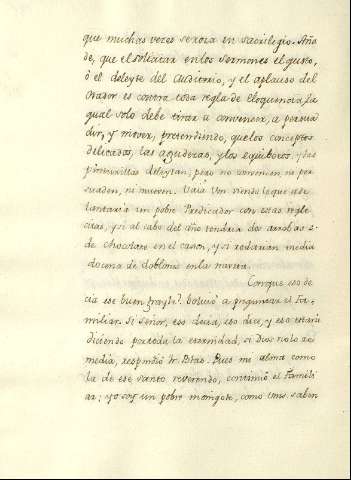 que muchas vezes se roza en sacrilegio. Aña
de, que el solicitar en los Sermones el gusto,
ò el deleyte del Auditorio, y el aplauso del
Orador es contra toda regla de Eloquencia, la
qual solo debe tirar a convencer, a persua
dir, y mover, pretendiendo, que los conceptos
delicados, las agudezas, y los equibocos, y las
pinturillas deleytan, pero no convencen ni per
suaden, ni mueven. Vaia Vm viendo lo que ade
lantaria un pobre Predicador con estas regle
citas, y si al cabo del año tendria dos arrobas
de chocolate en el caxon, y si rodarian media
docena de doblones en la naveta.
Conque eso de
cia ese buen frayle? bolvió a preguntar el Fa-
miliar. Si Señor, eso decia, eso dice, y eso estara
diciendo por toda la eternidad, si Dios no lo re
media, respondió Fr. Blas. Pues mi alma como
la de ese santo reverendo, continuò el Famili
ar; yo soy un pobre monigote, como Vms saben